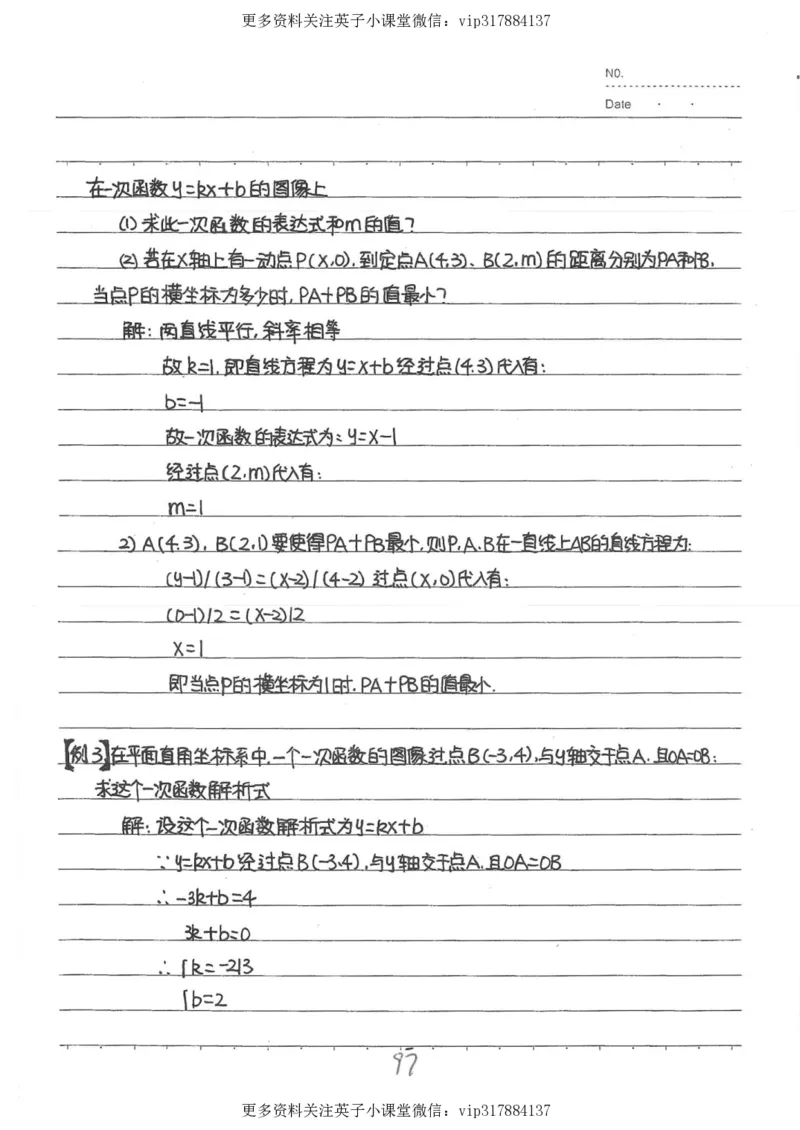 更多资料关注英子小课堂微信：vip317884137
NO.
Date
在一次函数y=kx+b的图像上
(1) 求此一次函数的表达式和m的值？
(2) 若在X轴上有一动点P(X,0),到定点A(4,3)、B(2,m)的距离分别为PA和PB,
当点P的横坐标为多少时,PA+PB的值最小？
解：两直线平行,斜率相等
故k=1,即直线方程为y=x+b经过点(4,3)代入有：
b=-1
故一次函数的表达式为：y=x-1
经过点(2,m)代入有：
m=1
2) A(4,3), B(2,1)要使得PA+PB最小,则P,A,B在一直线上AB的直线方程为:
(y-1)/(3-1)=(x-2)/(4-2) 过点(X,0)代入有：
(0-1)/2=(x-2)/2
x=1
即当点P的横坐标为1时,PA+PB的值最小.
【例3】在平面直角坐标系中,一个一次函数的图像过点B(-3,4),与y轴交于点A,且OA=OB：
求这个一次函数解析式
解：设这个一次函数解析式为y=kx+b
∵y=kx+b经过点B(-3,4),与y轴交于点A,且OA=OB
∴-3k+b=4
3k+b=0
∴{k=-2/3
{b=2
97
更多资料关注英子小课堂微信：vip317884137